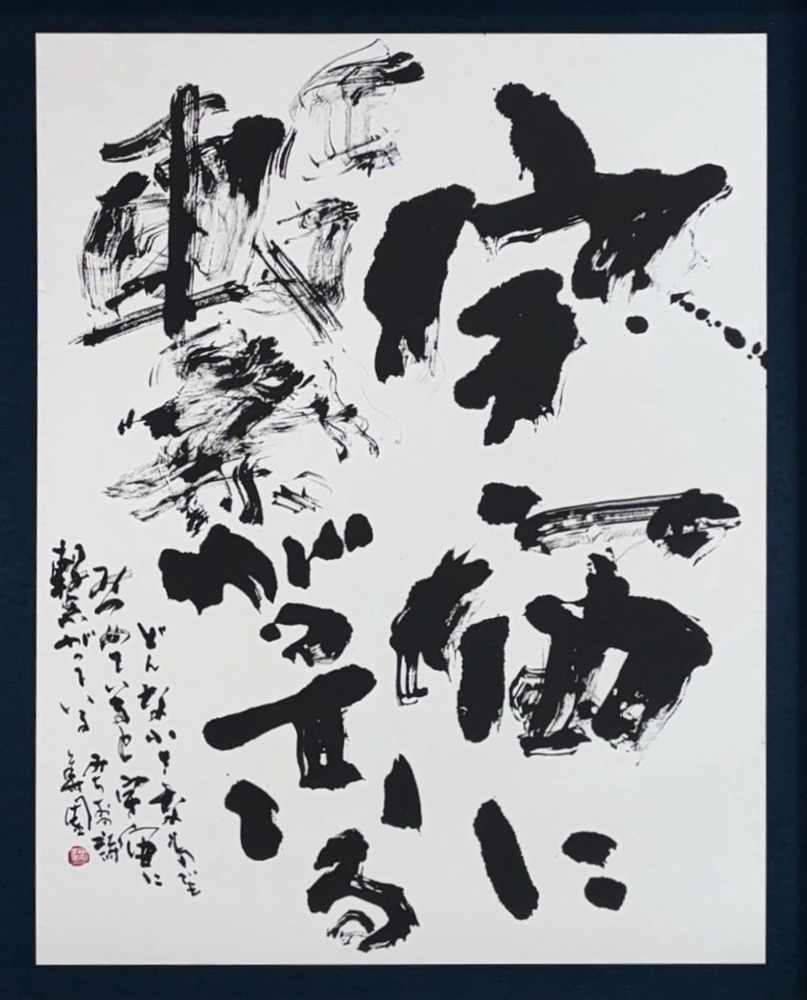 宇宙に
繋がっている
どんな小さなものでも
みつめていると宇宙に
繋がっている